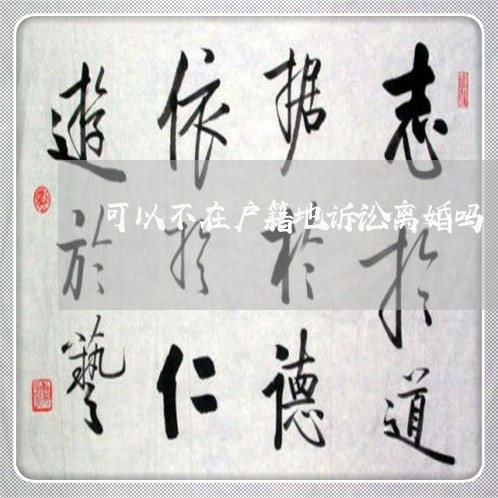 志於道
据於德
依於仁
遊於藝
可以不在户籍地诉讼离婚吗